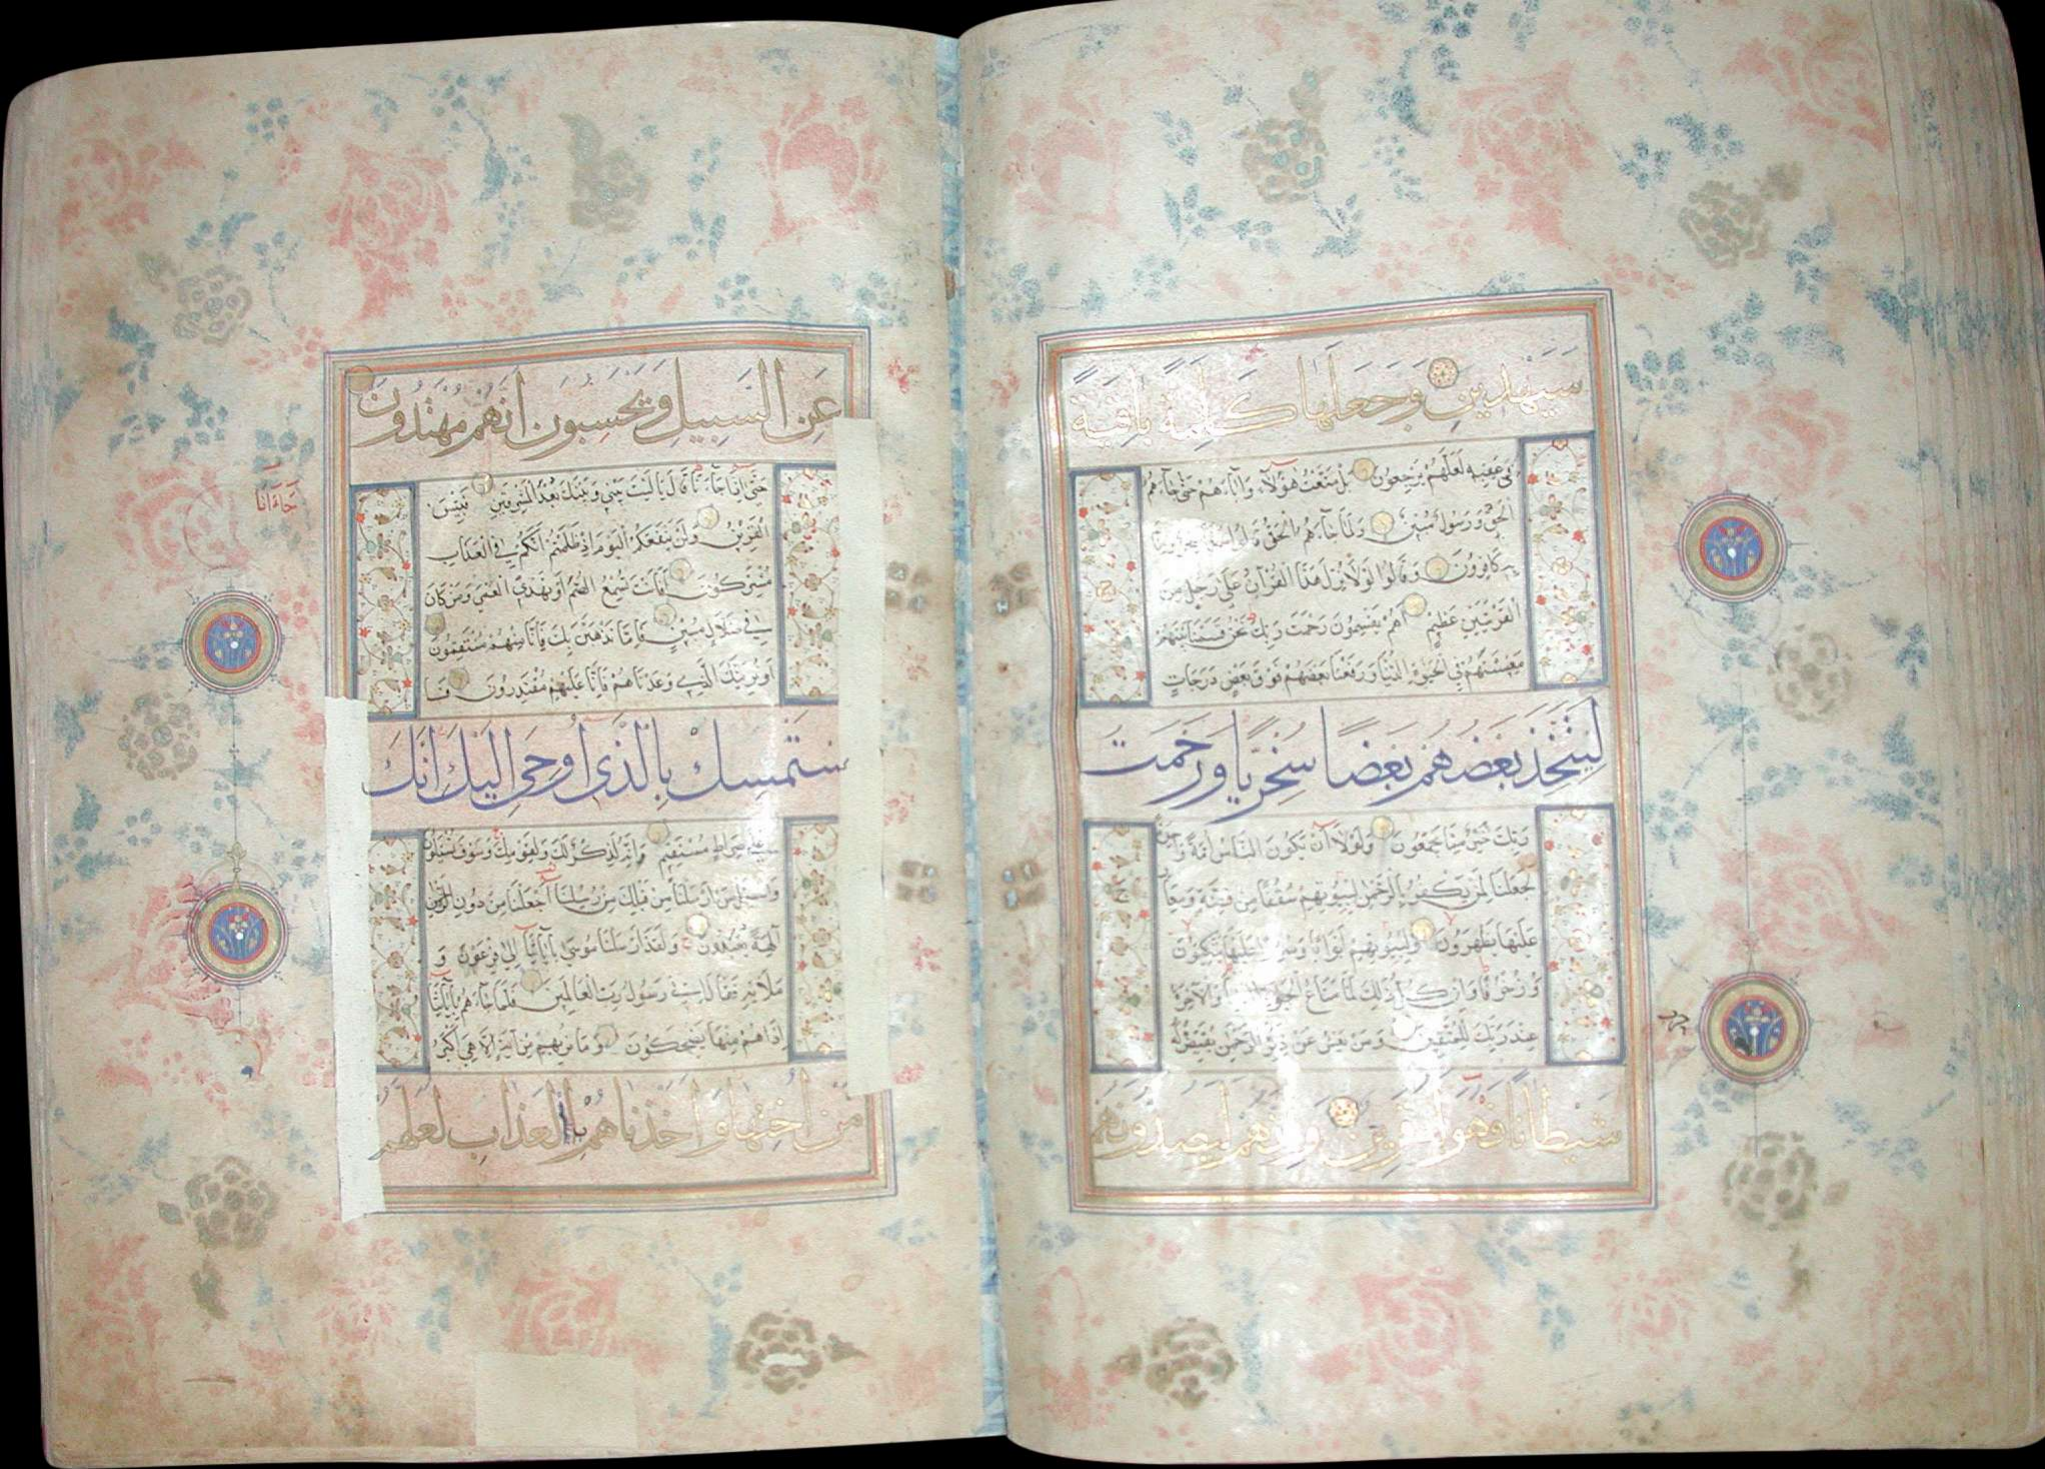 سَيَهْدِينِ وَجَعَلَهَا كَلِمَةً بَاقِيَةً
فِي عَقِبِهِ لَعَلَّهُمْ يَرْجِعُونَ بَلْ مَتَّعْتُ هَؤُلَاءِ وَآبَاءَهُمْ حَتَّى جَاءَهُمُ
الْحَقُّ وَرَسُولٌ مُبِينٌ وَلَمَّا جَاءَهُمُ الْحَقُّ قَالُوا هَذَا سِحْرٌ وَإِنَّا
بِهِ كَافِرُونَ وَقَالُوا لَوْلَا نُزِّلَ هَذَا الْقُرْآنُ عَلَى رَجُلٍ مِنَ
الْقَرْيَتَيْنِ عَظِيمٍ أَهُمْ يَقْسِمُونَ رَحْمَتَ رَبِّكَ نَحْنُ قَسَمْنَا بَيْنَهُمْ
مَعِيشَتَهُمْ فِي الْحَيَوةِ الدُّنْيَا وَرَفَعْنَا بَعْضَهُمْ فَوْقَ بَعْضٍ دَرَجَاتٍ
لِيَتَّخِذَ بَعْضُهُمْ بَعْضًا سُخْرِيًّا وَرَحْمَتُ
رَبِّكَ خَيْرٌ مِمَّا يَجْمَعُونَ وَلَوْلَا أَنْ يَكُونَ النَّاسُ أُمَّةً وَاحِدَةً
لَجَعَلْنَا لِمَنْ يَكْفُرُ بِالرَّحْمَنِ لِبُيُوتِهِمْ سُقُفًا مِنْ فِضَّةٍ وَمَعَارِجَ
عَلَيْهَا يَظْهَرُونَ وَلِبُيُوتِهِمْ أَبْوَابًا وَسُرُرًا عَلَيْهَا يَتَّكِئُونَ
وَزُخْرُفًا وَإِنْ كُلُّ ذَلِكَ لَمَّا مَتَاعُ الْحَيَوةِ الدُّنْيَا وَالْآخِرَةُ
عِنْدَ رَبِّكَ لِلْمُتَّقِينَ وَمَنْ يَعْشُ عَنْ ذِكْرِ الرَّحْمَنِ نُقَيِّضْ لَهُ
شَيْطَانًا فَهُوَ لَهُ قَرِينٌ وَإِنَّهُمْ لَيَصُدُّونَهُمْ
حزب
عَنِ السَّبِيلِ وَيَحْسَبُونَ أَنَّهُمْ مُهْتَدُونَ
حَتَّى إِذَا جَاءَنَا قَالَ يَا لَيْتَ بَيْنِي وَبَيْنَكَ بُعْدَ الْمَشْرِقَيْنِ فَبِئْسَ
الْقَرِينُ وَلَنْ يَنْفَعَكُمُ الْيَوْمَ إِذْ ظَلَمْتُمْ أَنَّكُمْ فِي الْعَذَابِ
مُشْتَرِكُونَ أَفَأَنْتَ تُسْمِعُ الصُّمَّ أَوْ تَهْدِي الْعُمْيَ وَمَنْ كَانَ
فِي ضَلَالٍ مُبِينٍ فَإِمَّا نَذْهَبَنَّ بِكَ فَإِنَّا مِنْهُمْ مُنْتَقِمُونَ
أَوْ نُرِيَنَّكَ الَّذِي وَعَدْنَاهُمْ فَإِنَّا عَلَيْهِمْ مُقْتَدِرُونَ فَا
سْتَمْسِكْ بِالَّذِي أُوحِيَ إِلَيْكَ إِنَّكَ
عَلَى صِرَاطٍ مُسْتَقِيمٍ وَإِنَّهُ لَذِكْرٌ لَكَ وَلِقَوْمِكَ وَسَوْفَ تُسْئَلُونَ
وَاسْئَلْ مَنْ أَرْسَلْنَا مِنْ قَبْلِكَ مِنْ رُسُلِنَا أَجَعَلْنَا مِنْ دُونِ الرَّحْمَنِ
آلِهَةً يُعْبَدُونَ وَلَقَدْ أَرْسَلْنَا مُوسَى بِآيَاتِنَا إِلَى فِرْعَوْنَ وَ
مَلَائِهِ فَقَالَ إِنِّي رَسُولُ رَبِّ الْعَالَمِينَ فَلَمَّا جَاءَهُمْ بِآيَاتِنَا
إِذَا هُمْ مِنْهَا يَضْحَكُونَ وَمَا نُرِيهِمْ مِنْ آيَةٍ إِلَّا هِيَ أَكْبَرُ
مِنْ أُخْتِهَا وَأَخَذْنَاهُمْ بِالْعَذَابِ لَعَلَّهُمْ
جَاءَانَا